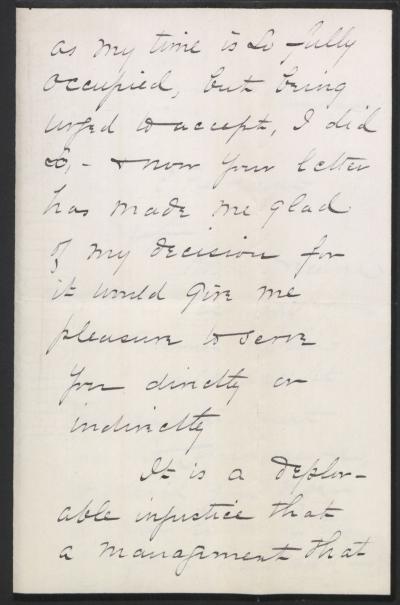 as my time is so fully
occupied, but being
urged to accept, I did
so, - & now your letter
has made me glad
of my decision for
it would give me
pleasure to serve
you directly or
indirectly
It is a deplor-
able injustice that
a management that